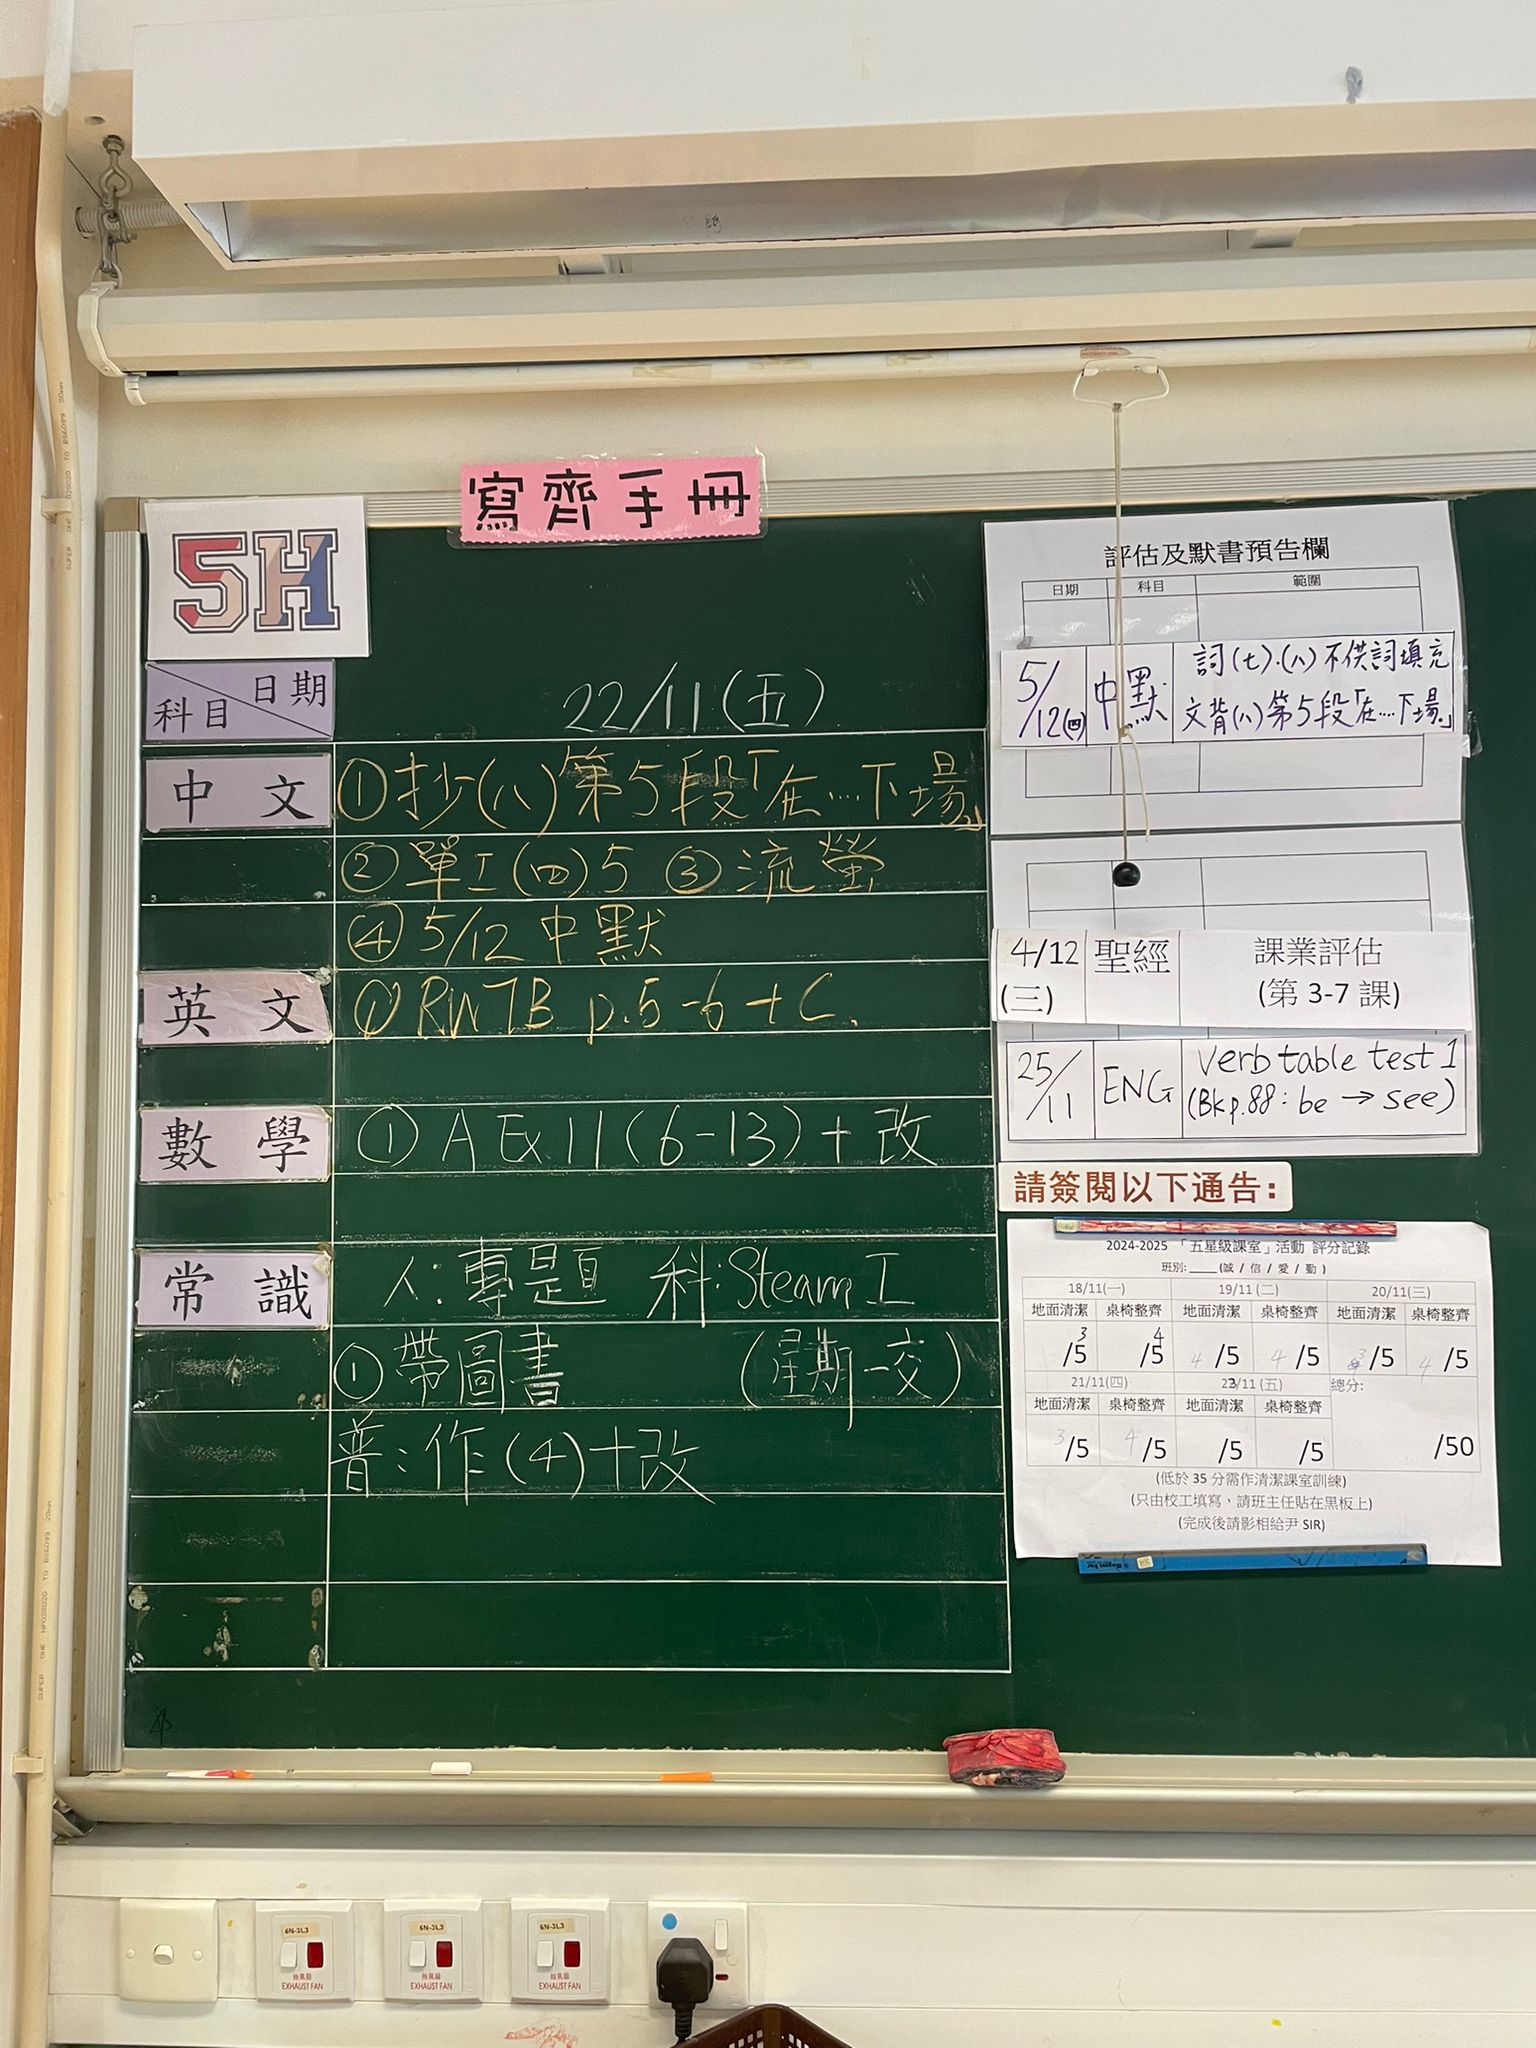 寫齊手冊
5H
日期
科目
22/11(五)
中文
①抄(八)第5段「在....下場」
②單工(四)5 ③流螢
④5/12 中默
英文
①RWTB p.5-6+C.
數學
①A Ex11(6-13)+改
常識
人:專題 科:Steam工
①帶圖書 (星期一交)
普:作(4)+改
評估及默書預告欄
日期 科目 範圍
5/12(四) 中默 詞(七)、(八)不供詞填充
文背(八)第5段「在....下場」
4/12 聖經 課業評估
(三) (第 3-7 課)
25/11 ENG verb table test 1
(Bk p.88: be → see)
請簽閱以下通告:
2024-2025 「五星級課室」活動 評分記錄
班別:____(誠 / 信 / 愛 / 勤 )
18/11(一) 19/11(二) 20/11(三)
地面清潔 桌椅整齊 地面清潔 桌椅整齊 地面清潔 桌椅整齊
3/5 4/5 4/5 4/5 3/5 4/5
21/11(四) 22/11(五) 總分:
地面清潔 桌椅整齊 地面清潔 桌椅整齊
3/5 4/5 /5 /5 /50
(低於 35 分需作清潔課室訓練)
(只由校工填寫，請班主任貼在黑板上)
(完成後請影相給尹 SIR)
6N-3L3 6N-3L3 6N-3L3
抽氣扇 抽氣扇 抽氣扇
EXHAUST FAN EXHAUST FAN EXHAUST FAN